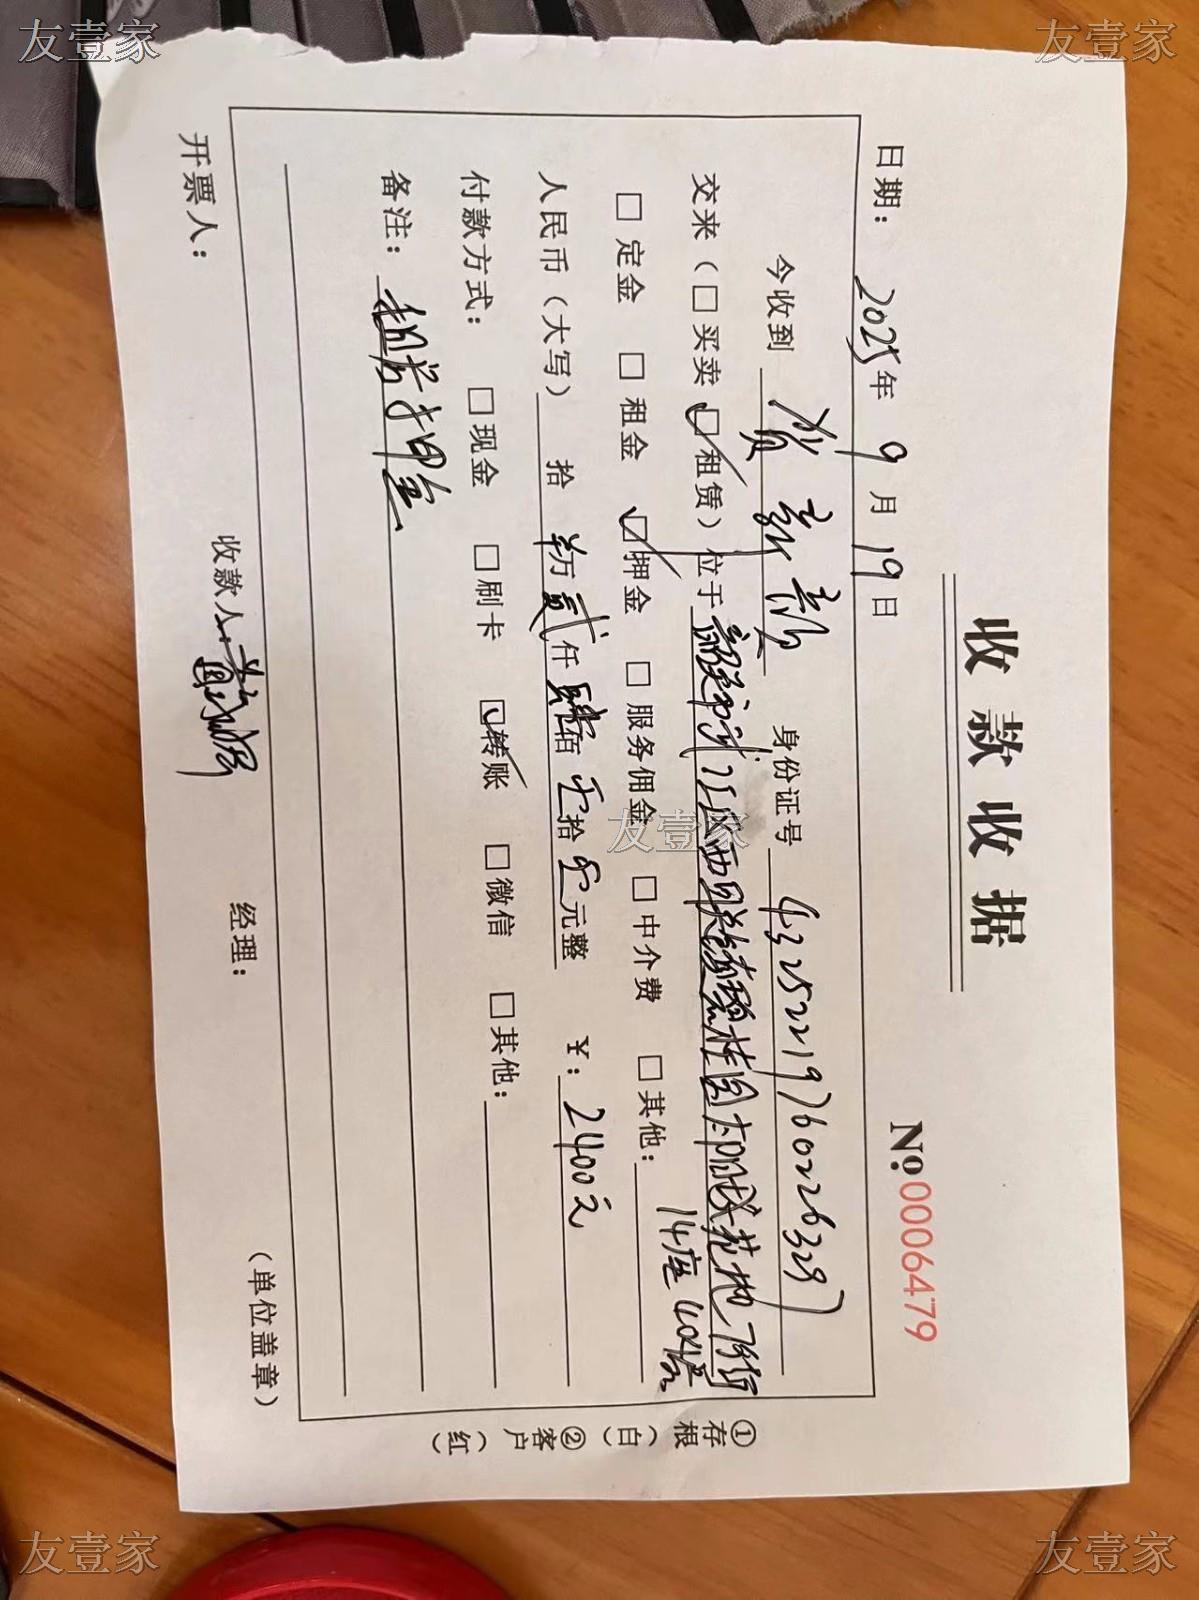 友壹家
友壹家
收款收据
No.0006479
日期：2025年9月19日
今收到 贺新新 身份证号 432522197602263297
交来（□买卖 ☑租赁）位于
14座
□定金 □租金 ☑押金 □服务佣金 □中介费 □其他：
人民币（大写） 拾 万 贰仟肆佰零拾零元整 ￥：2400元
付款方式： □现金 □刷卡 ☑转账 □微信 □其他：
备注：租房押金
开票人： 收款人： 经理： （单位盖章）
①存根（白）②客户（红）
友壹家
友壹家
友壹家